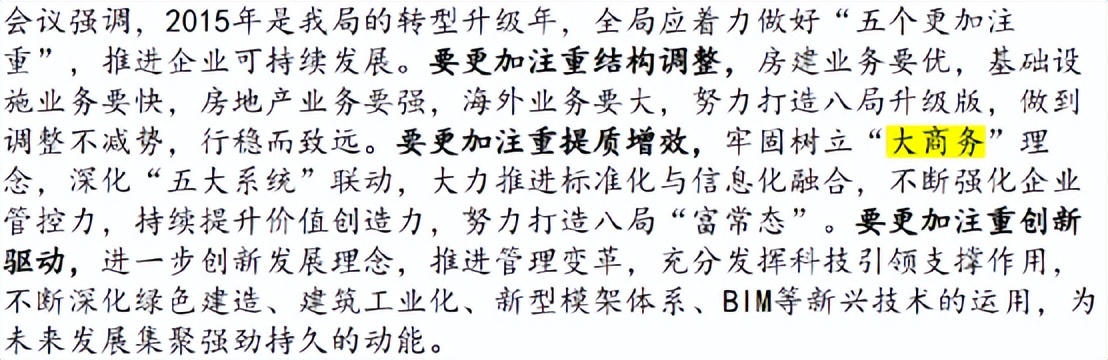 会议强调，2015年是我局的转型升级年，全局应着力做好“五个更加注
重”，推进企业可持续发展。要更加注重结构调整，房建业务要优，基础设
施业务要快，房地产业务要强，海外业务要大，努力打造八局升级版，做到
调整不减势，行稳而致远。要更加注重提质增效，牢固树立“大商务”理
念，深化“五大系统”联动，大力推进标准化与信息化融合，不断强化企业
管控力，持续提升价值创造力，努力打造八局“富常态”。要更加注重创新
驱动，进一步创新发展理念，推进管理变革，充分发挥科技引领支撑作用，
不断深化绿色建造、建筑工业化、新型模架体系、BIM等新兴技术的运用，为
未来发展集聚强劲持久的动能。